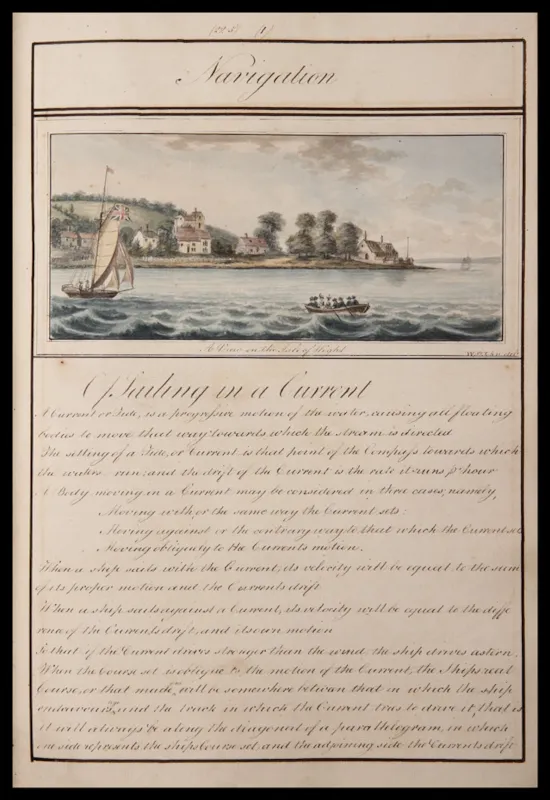 (1)
Navigation
A View on the Isle of Wight
Of Sailing in a Current
A Current or Tide, is a progressive motion of the water, causing all floating
bodies to move that way towards which the stream is directed
The setting of a Tide, or Current is that point of the Compass towards which
the waters run; and the drift of the Current is the rate it runs pr hour
A Body moving in a Current may be considered in three cases, namely,
Moving with, or the same way the Current sets:
Moving against or the contrary way to that which the Current sets
Moving obliquely to the Currents motion.
When a ship sails with the Current, its velocity will be equal to the sum
of its proper motion and the Currents drift
When a ship sails against a Current, its velocity will be equal to the diffe
rence of the Currents drift, and its own motion
So that if the Current drives stronger than the wind, the ship drives astern,
When the Course set is oblique to the motion of the Current, the Ships real
Course, or that made will be somewhere between that in which the ship
endeavours and the track in which the Current tries to drive it, that is
it will always be along the diagonal of a parallelogram, in which
one side represents the ships Course set, and the adjoining side the Currents drift